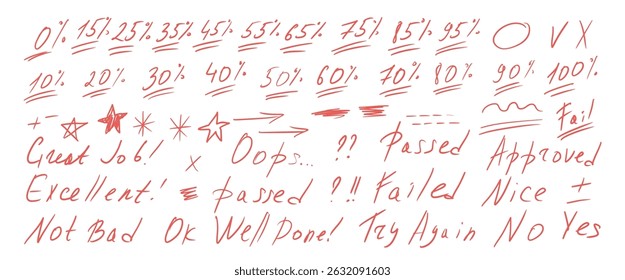 0% 15% 25% 35% 45% 55% 65% 75% 85% 95% V X
10% 20% 30% 40% 50% 60% 70% 80% 90% 100%
+ - Fail
Great Job! x Oops... ?? Passed Approved
Excellent! passed ?!! Failed Nice ±
Not Bad Ok Well Done! Try Again No Yes
shutterstock.com · 2632091603